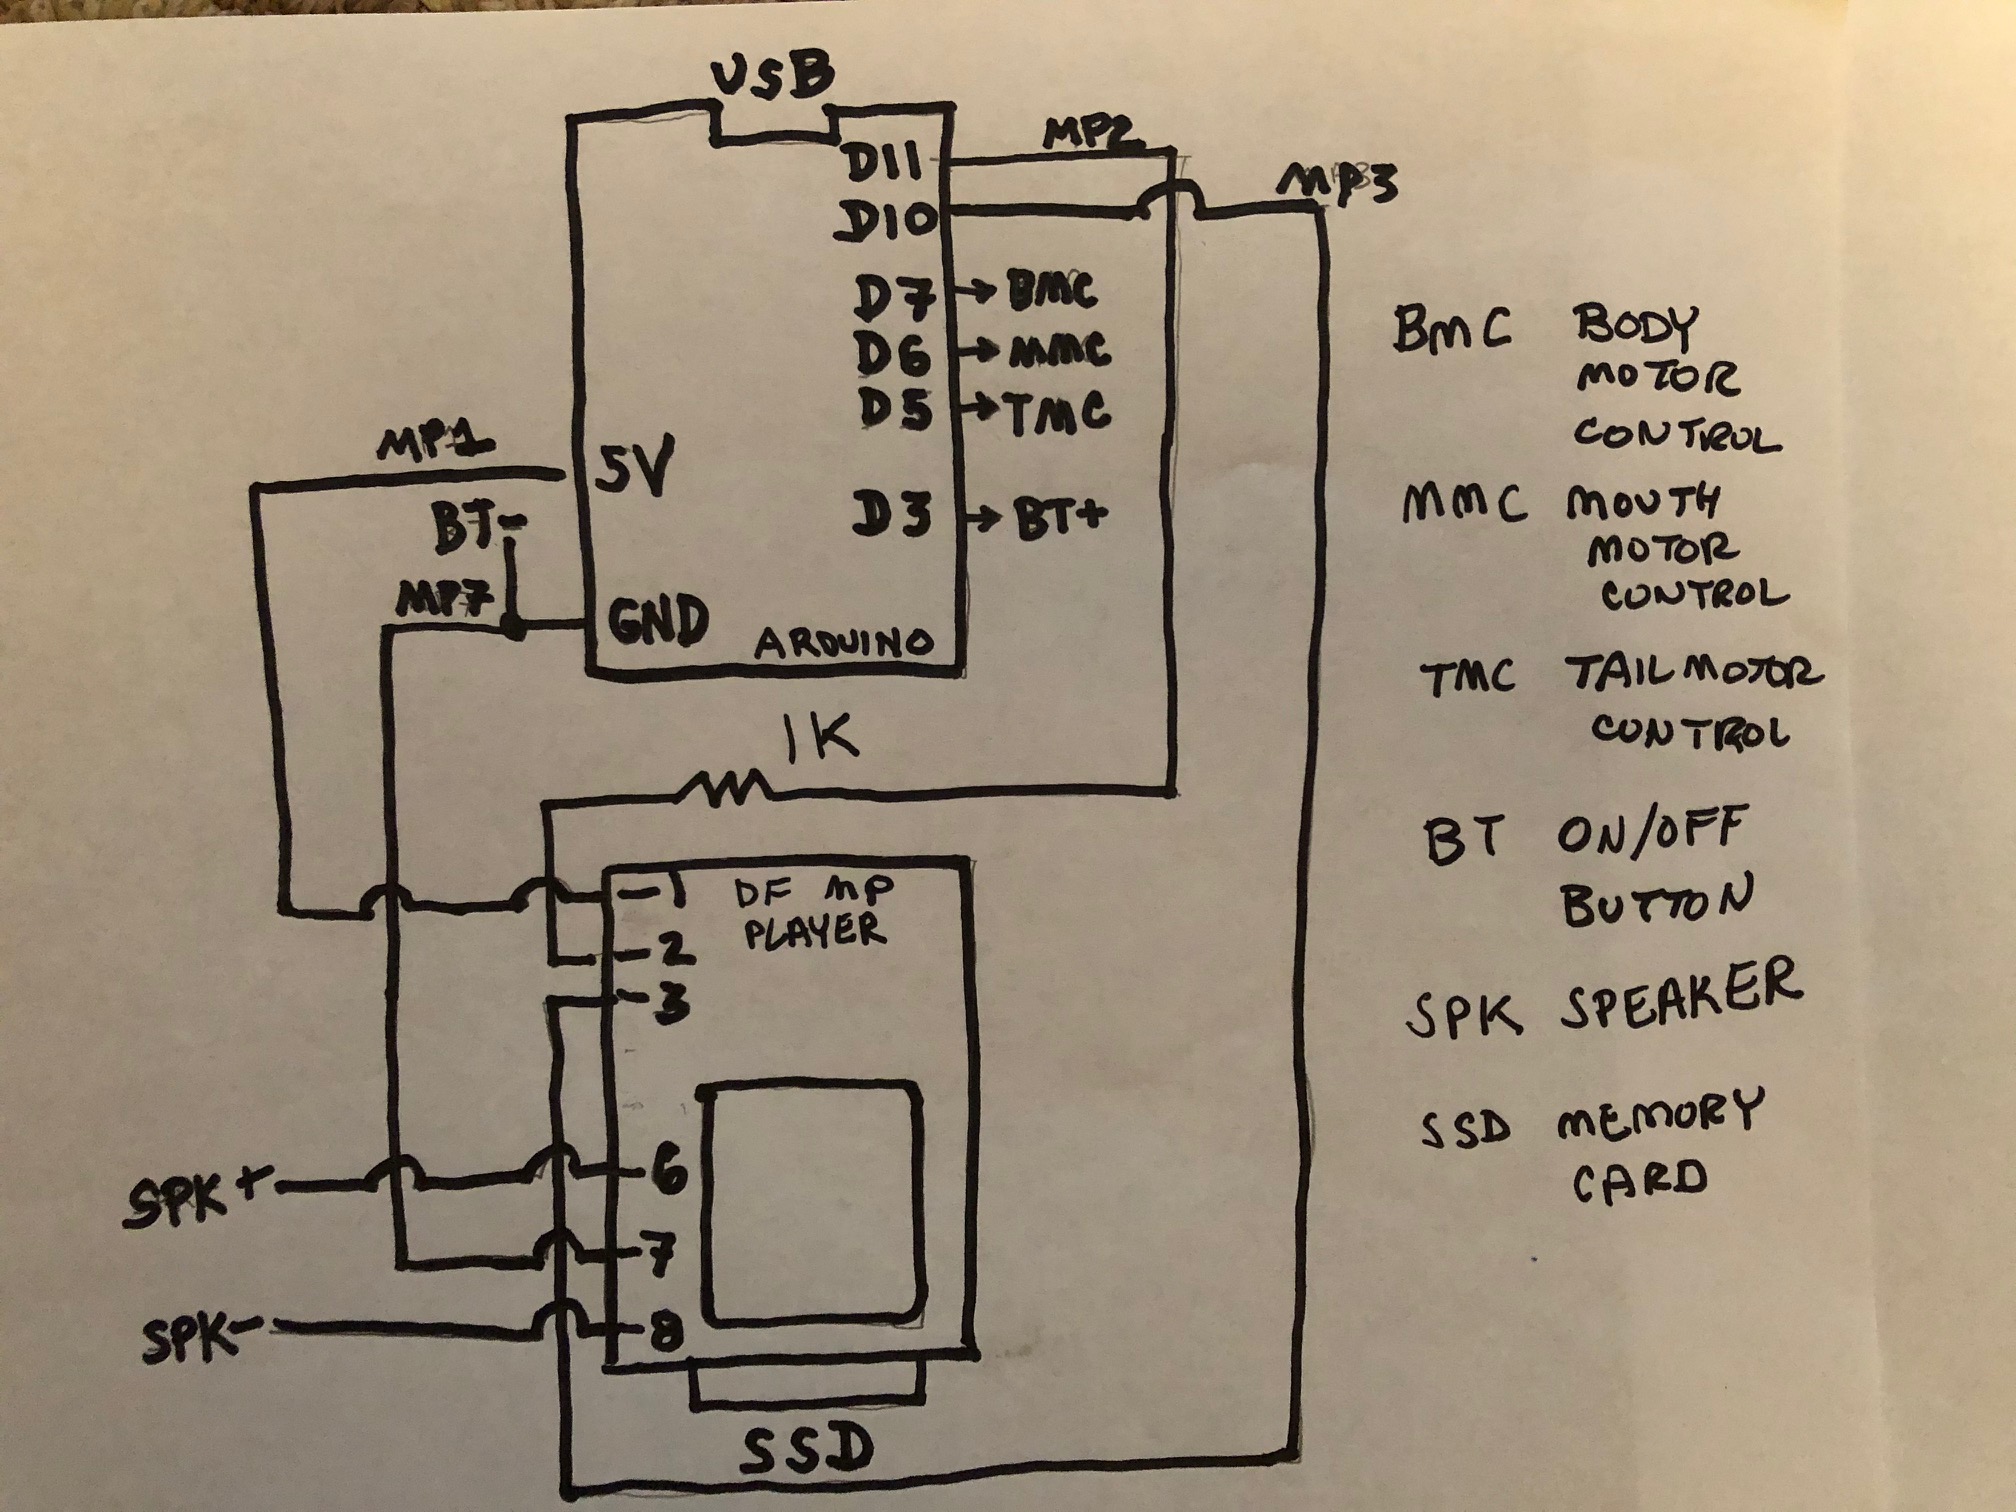 USB
D11
MP2
D10
MP3
D7 BMC
D6 MMC
D5 TMC
MP1
5V
BT-
D3 BT+
MP7
GND
ARDUINO
1K
1 DF MP
PLAYER
2
3
SPK+
6
7
SPK-
8
SSD
BMC BODY
MOTOR
CONTROL
MMC MOUTH
MOTOR
CONTROL
TMC TAIL MOTOR
CONTROL
BT ON/OFF
BUTTON
SPK SPEAKER
SSD MEMORY
CARD